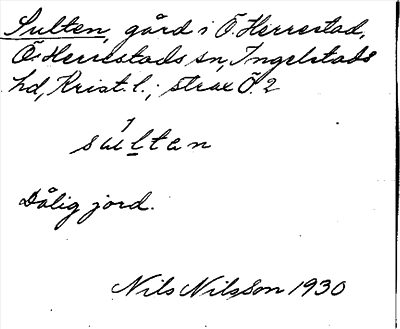 Sulten, gård i Ö. Herrestad,
Ö. Herrestads sn, Ingelstads
hd, Krist. l.; strax Ö. 2
sultan
Dålig jord.
Nils Nilsson 1930